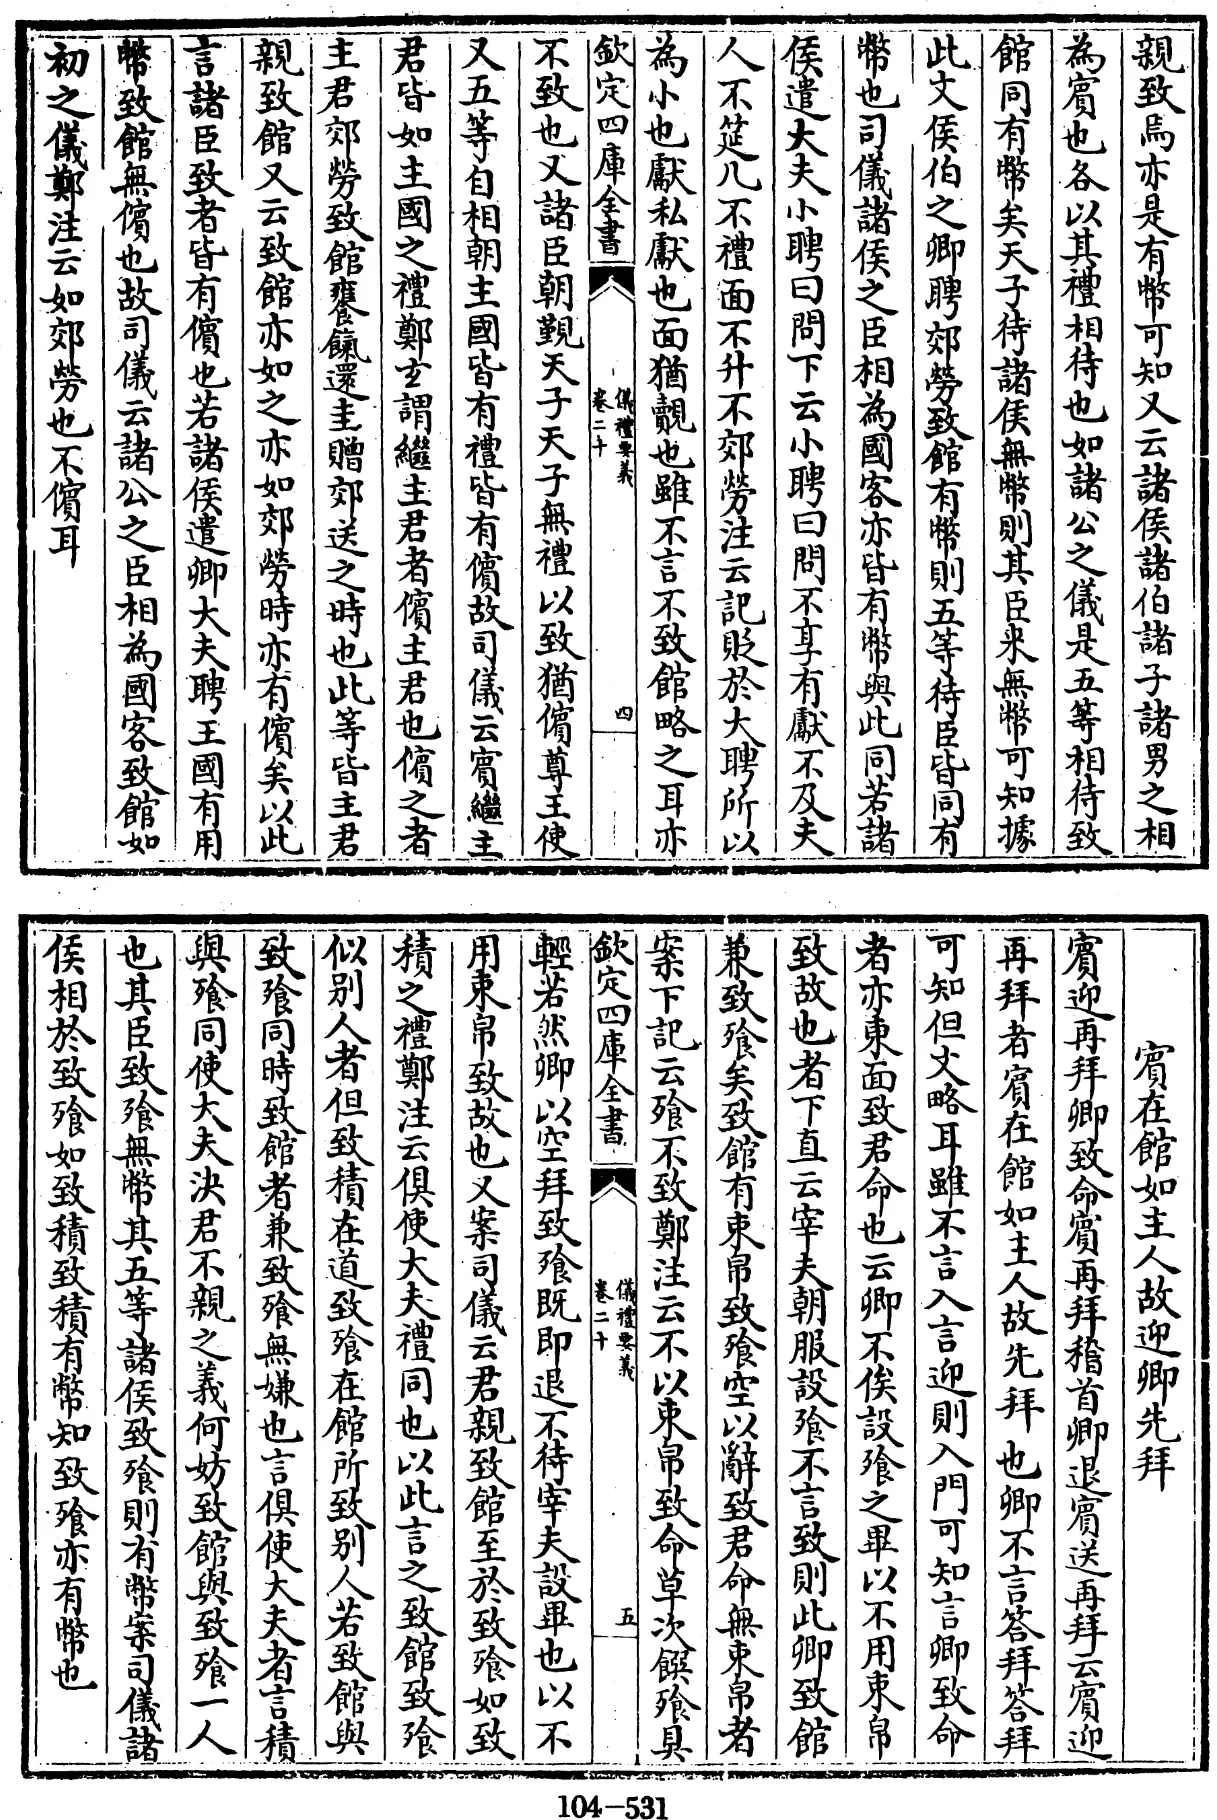 親致焉亦是有幣可知又云諸侯諸伯諸子諸男之相
為賓也各以其禮相待也如諸公之儀是五等相待致
館同有幣矣天子待諸侯無幣則其臣来無幣可知據
此文侯伯之卿聘郊勞致館有幣則五等待臣皆同有
幣也司儀諸侯之臣相為國客亦皆有幣與此同若諸
侯遣大夫小聘曰問下云小聘曰問不享有獻不及夫
人不筵几不禮面不升不郊勞注云記貶於大聘所以
為小也獻私獻也面猶覿也雖不言不致館略之耳亦
欽定四庫全書
儀禮要義
卷二十
四
不致也又諸臣朝覲天子天子無禮以致猶儐尊王使
又五等自相朝主國皆有禮皆有儐故司儀云賓繼主
君皆如主國之禮鄭玄謂繼主君者儐主君也儐之者
主君郊勞致館饔餼還圭贈郊送之時也此等皆主君
親致館又云致館亦如之亦如郊勞時亦有儐矣以此
言諸臣致者皆有儐也若諸侯遣卿大夫聘王國有用
幣致館無儐也故司儀云諸公之臣相為國客致館如
初之儀鄭注云如郊勞也不儐耳
賓在館如主人故迎卿先拜
賓迎再拜卿致命賓再拜稽首卿退賓送再拜云賓迎
再拜者賓在館如主人故先拜也卿不言答拜答拜
可知但文略耳雖不言入言迎則入門可知言卿致命
者亦東面致君命也云卿不俟設飧之畢以不用束帛
致故也者下直云宰夫朝服設飧不言致則此卿致館
兼致飧矣致館有束帛致飧空以辭致君命無束帛者
案下記云飧不致鄭注云不以束帛致命草次饌飧具
欽定四庫全書
儀禮要義
卷二十
五
輕若然卿以空拜致飧既即退不待宰夫設畢也以不
用束帛致故也又案司儀云君親致館至於致飧如致
積之禮鄭注云俱使大夫禮同也以此言之致館致飧
似別人者但致積在道致飧在館所致別人若致館與
致飧同時致館者兼致飧無嫌也言俱使大夫者言積
與飧同使大夫決君不親之義何妨致館與致飧一人
也其臣致飧無幣其五等諸侯致飧則有幣案司儀諸
侯相於致飧如致積致積有幣知致飧亦有幣也
104-531